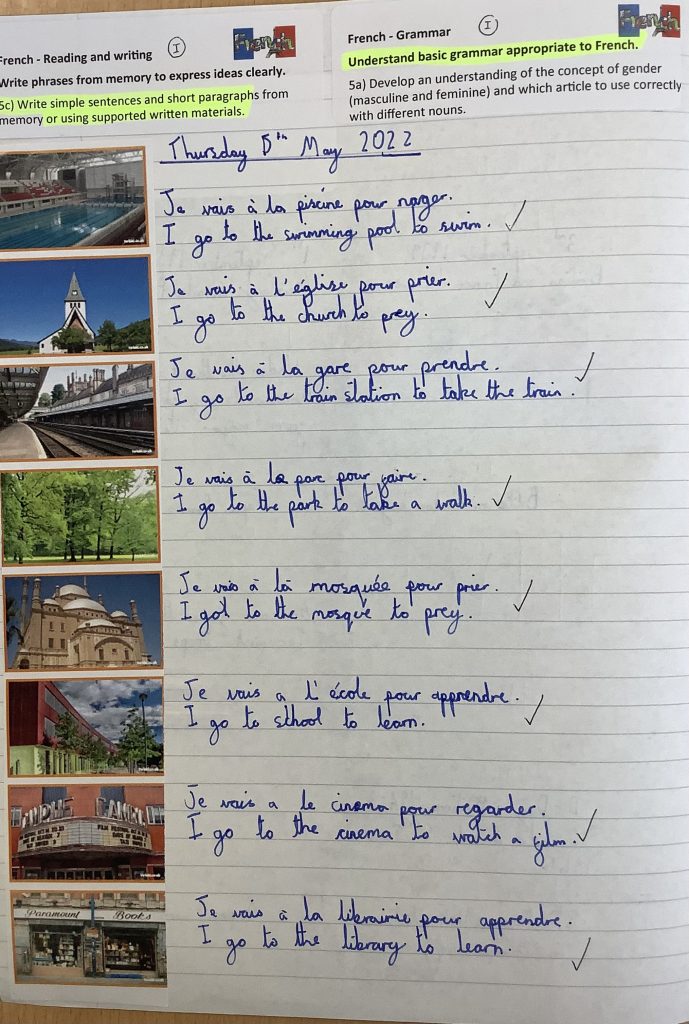 French - Reading and writing
I
French
Write phrases from memory to express ideas clearly.
5c) Write simple sentences and short paragraphs from
memory or using supported written materials.
French - Grammar
I
French
Understand basic grammar appropriate to French.
5a) Develop an understanding of the concept of gender
(masculine and feminine) and which article to use correctly
with different nouns.
Thursday 5th May 2022
Je vais à la piscine pour nager.
I go to the swimming pool to swim.
Je vais à l'église pour prier.
I go to the church to prey.
Je vais à la gare pour prendre.
I go to the train station to take the train.
Je vais à le parc pour faire.
I go to the park to take a walk.
Je vais à là mosquée pour prier.
I got to the mosque to prey.
Je vais a l'école pour apprendre.
I go to sthool to learn.
Je vais a le cinema pour regarder.
I go to the cinema to watch a film.
Paramount Books
Je vais à la librairie pour apprendre.
I go to the library to learn.